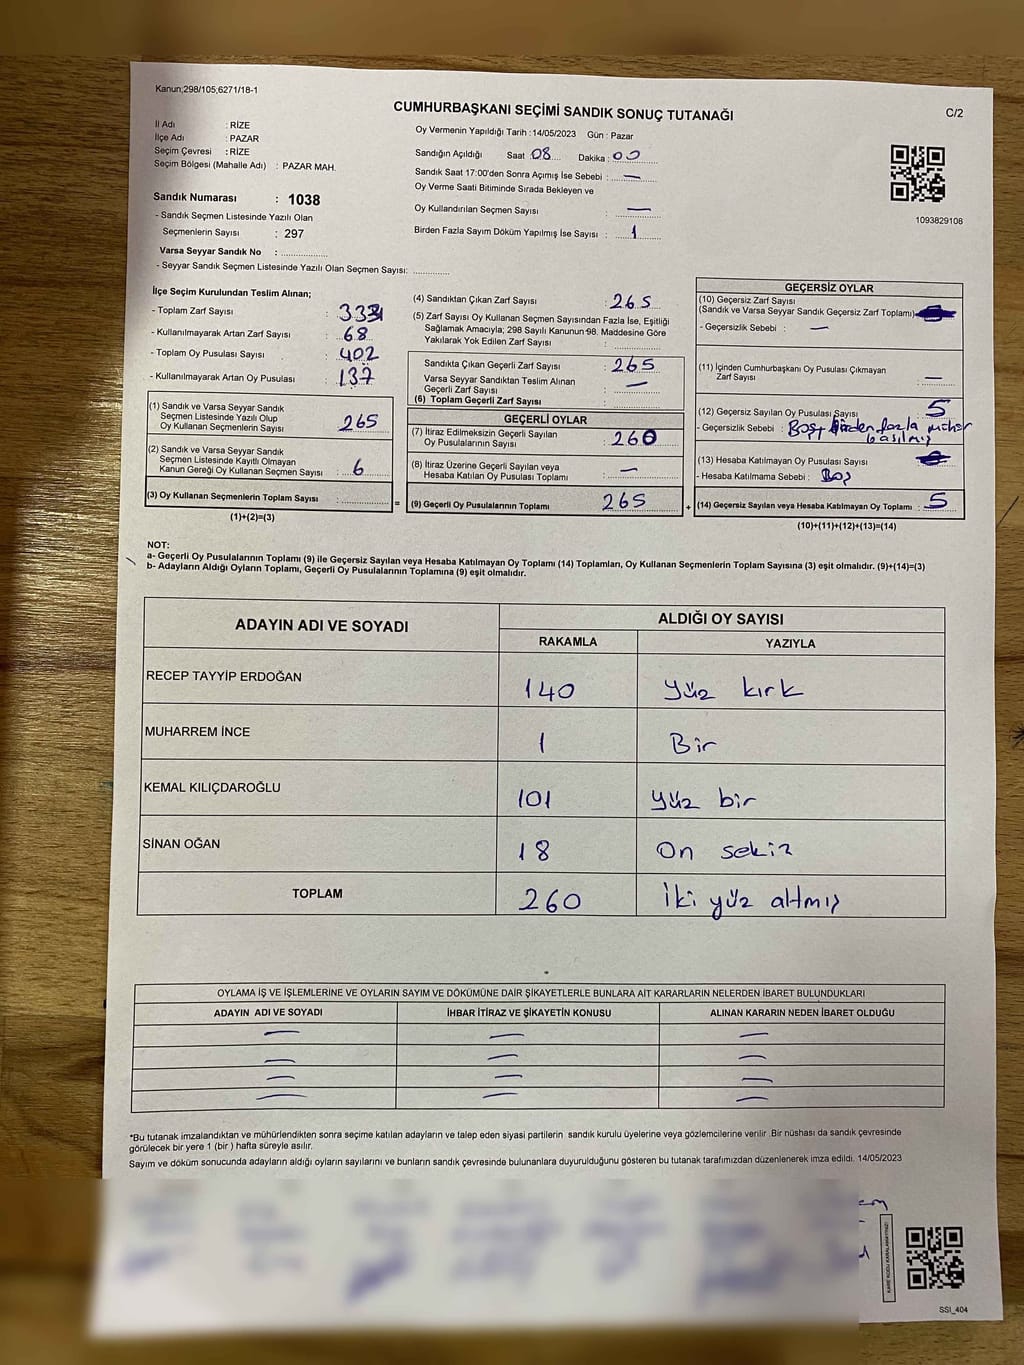 Kanun;298/105;6271/18-1
CUMHURBAŞKANI SEÇİMİ SANDIK SONUÇ TUTANAĞI
C/2
İl Adı : RİZE
İlçe Adı : PAZAR
Seçim Çevresi : RİZE
Seçim Bölgesi (Mahalle Adı) : PAZAR MAH.
Sandık Numarası : 1038
- Sandık Seçmen Listesinde Yazılı Olan
Seçmenlerin Sayısı : 297
Varsa Seyyar Sandık No :
- Seyyar Sandık Seçmen Listesinde Yazılı Olan Seçmen Sayısı:
Oy Vermenin Yapıldığı Tarih :14/05/2023 Gün : Pazar
Sandığın Açıldığı Saat 08 Dakika : 00
Sandık Saat 17:00'den Sonra Açımış İse Sebebi : —
Oy Verme Saati Bitiminde Sırada Bekleyen ve
Oy Kullandırılan Seçmen Sayısı : —
Birden Fazla Sayım Döküm Yapılmış İse Sayısı : 1
1093829108
İlçe Seçim Kurulundan Teslim Alınan;
- Toplam Zarf Sayısı :
- Kullanılmayarak Artan Zarf Sayısı : 68
- Toplam Oy Pusulası Sayısı : 402
- Kullanılmayarak Artan Oy Pusulası : 137
(1) Sandık ve Varsa Seyyar Sandık
Seçmen Listesinde Yazılı Olup
Oy Kullanan Seçmenlerin Sayısı : 265
(2) Sandık ve Varsa Seyyar Sandık
Seçmen Listesinde Kayıtlı Olmayan
Kanun Gereği Oy Kullanan Seçmen Sayısı : 6
(3) Oy Kullanan Seçmenlerin Toplam Sayısı : =
(1)+(2)=(3)
(4) Sandıktan Çıkan Zarf Sayısı : 265
(5) Zarf Sayısı Oy Kullanan Seçmen Sayısından Fazla İse, Eşitliği
Sağlamak Amacıyla; 298 Sayılı Kanunun 98. Maddesine Göre
Yakılarak Yok Edilen Zarf Sayısı :
Sandıkta Çıkan Geçerli Zarf Sayısı : 265
Varsa Seyyar Sandıktan Teslim Alınan
Geçerli Zarf Sayısı : —
(6) Toplam Geçerli Zarf Sayısı :
GEÇERLİ OYLAR
(7) İtiraz Edilmeksizin Geçerli Sayılan
Oy Pusulalarının Sayısı : 260
(8) İtiraz Üzerine Geçerli Sayılan veya
Hesaba Katılan Oy Pusulası Toplamı : —
(9) Geçerli Oy Pusulalarının Toplamı 265 +
GEÇERSİZ OYLAR
(10) Geçersiz Zarf Sayısı
(Sandık ve Varsa Seyyar Sandık Geçersiz Zarf Toplamı):
- Geçersizlik Sebebi : —
(11) İçinden Cumhurbaşkanı Oy Pusulası Çıkmayan
Zarf Sayısı : —
(12) Geçersiz Sayılan Oy Pusulası Sayısı : 5
- Geçersizlik Sebebi : Boş+ Birden fazla mühür
basılmış
(13) Hesaba Katılmayan Oy Pusulası Sayısı :
- Hesaba Katılmama Sebebi : Boş
(14) Geçersiz Sayılan veya Hesaba Katılmayan Oy Toplamı : 5
(10)+(11)+(12)+(13)=(14)
NOT:
a- Geçerli Oy Pusulalarının Toplamı (9) ile Geçersiz Sayılan veya Hesaba Katılmayan Oy Toplamı (14) Toplamları, Oy Kullanan Seçmenlerin Toplam Sayısına (3) eşit olmalıdır. (9)+(14)=(3)
b- Adayların Aldığı Oyların Toplamı, Geçerli Oy Pusulalarının Toplamına (9) eşit olmalıdır.
ADAYIN ADI VE SOYADI
ALDIĞI OY SAYISI
RAKAMLA YAZIYLA
RECEP TAYYİP ERDOĞAN 140 Yüz kırk
MUHARREM İNCE 1 Bir
KEMAL KILIÇDAROĞLU 101 yüz bir
SİNAN OĞAN 18 On sekiz
TOPLAM 260 İki yüz altmış
OYLAMA İŞ VE İŞLEMLERİNE VE OYLARIN SAYIM VE DÖKÜMÜNE DAİR ŞİKAYETLERLE BUNLARA AİT KARARLARIN NELERDEN İBARET BULUNDUKLARI
ADAYIN ADI VE SOYADI İHBAR İTİRAZ VE ŞİKAYETİN KONUSU ALINAN KARARIN NEDEN İBARET OLDUĞU
— — —
— — —
— — —
— — —
*Bu tutanak imzalandıktan ve mühürlendikten sonra seçime katılan adayların ve talep eden siyasi partilerin sandık kurulu üyelerine veya gözlemcilerine verilir .Bir nüshası da sandık çevresinde
görülecek bir yere 1 (bir ) hafta süreyle asılır.
Sayım ve döküm sonucunda adayların aldığı oyların sayılarını ve bunların sandık çevresinde bulunanlara duyurulduğunu gösteren bu tutanak tarafımızdan düzenlenerek imza edildi. 14/05/2023
KARE KODU KARALAMAYINIZ!
SSI_404